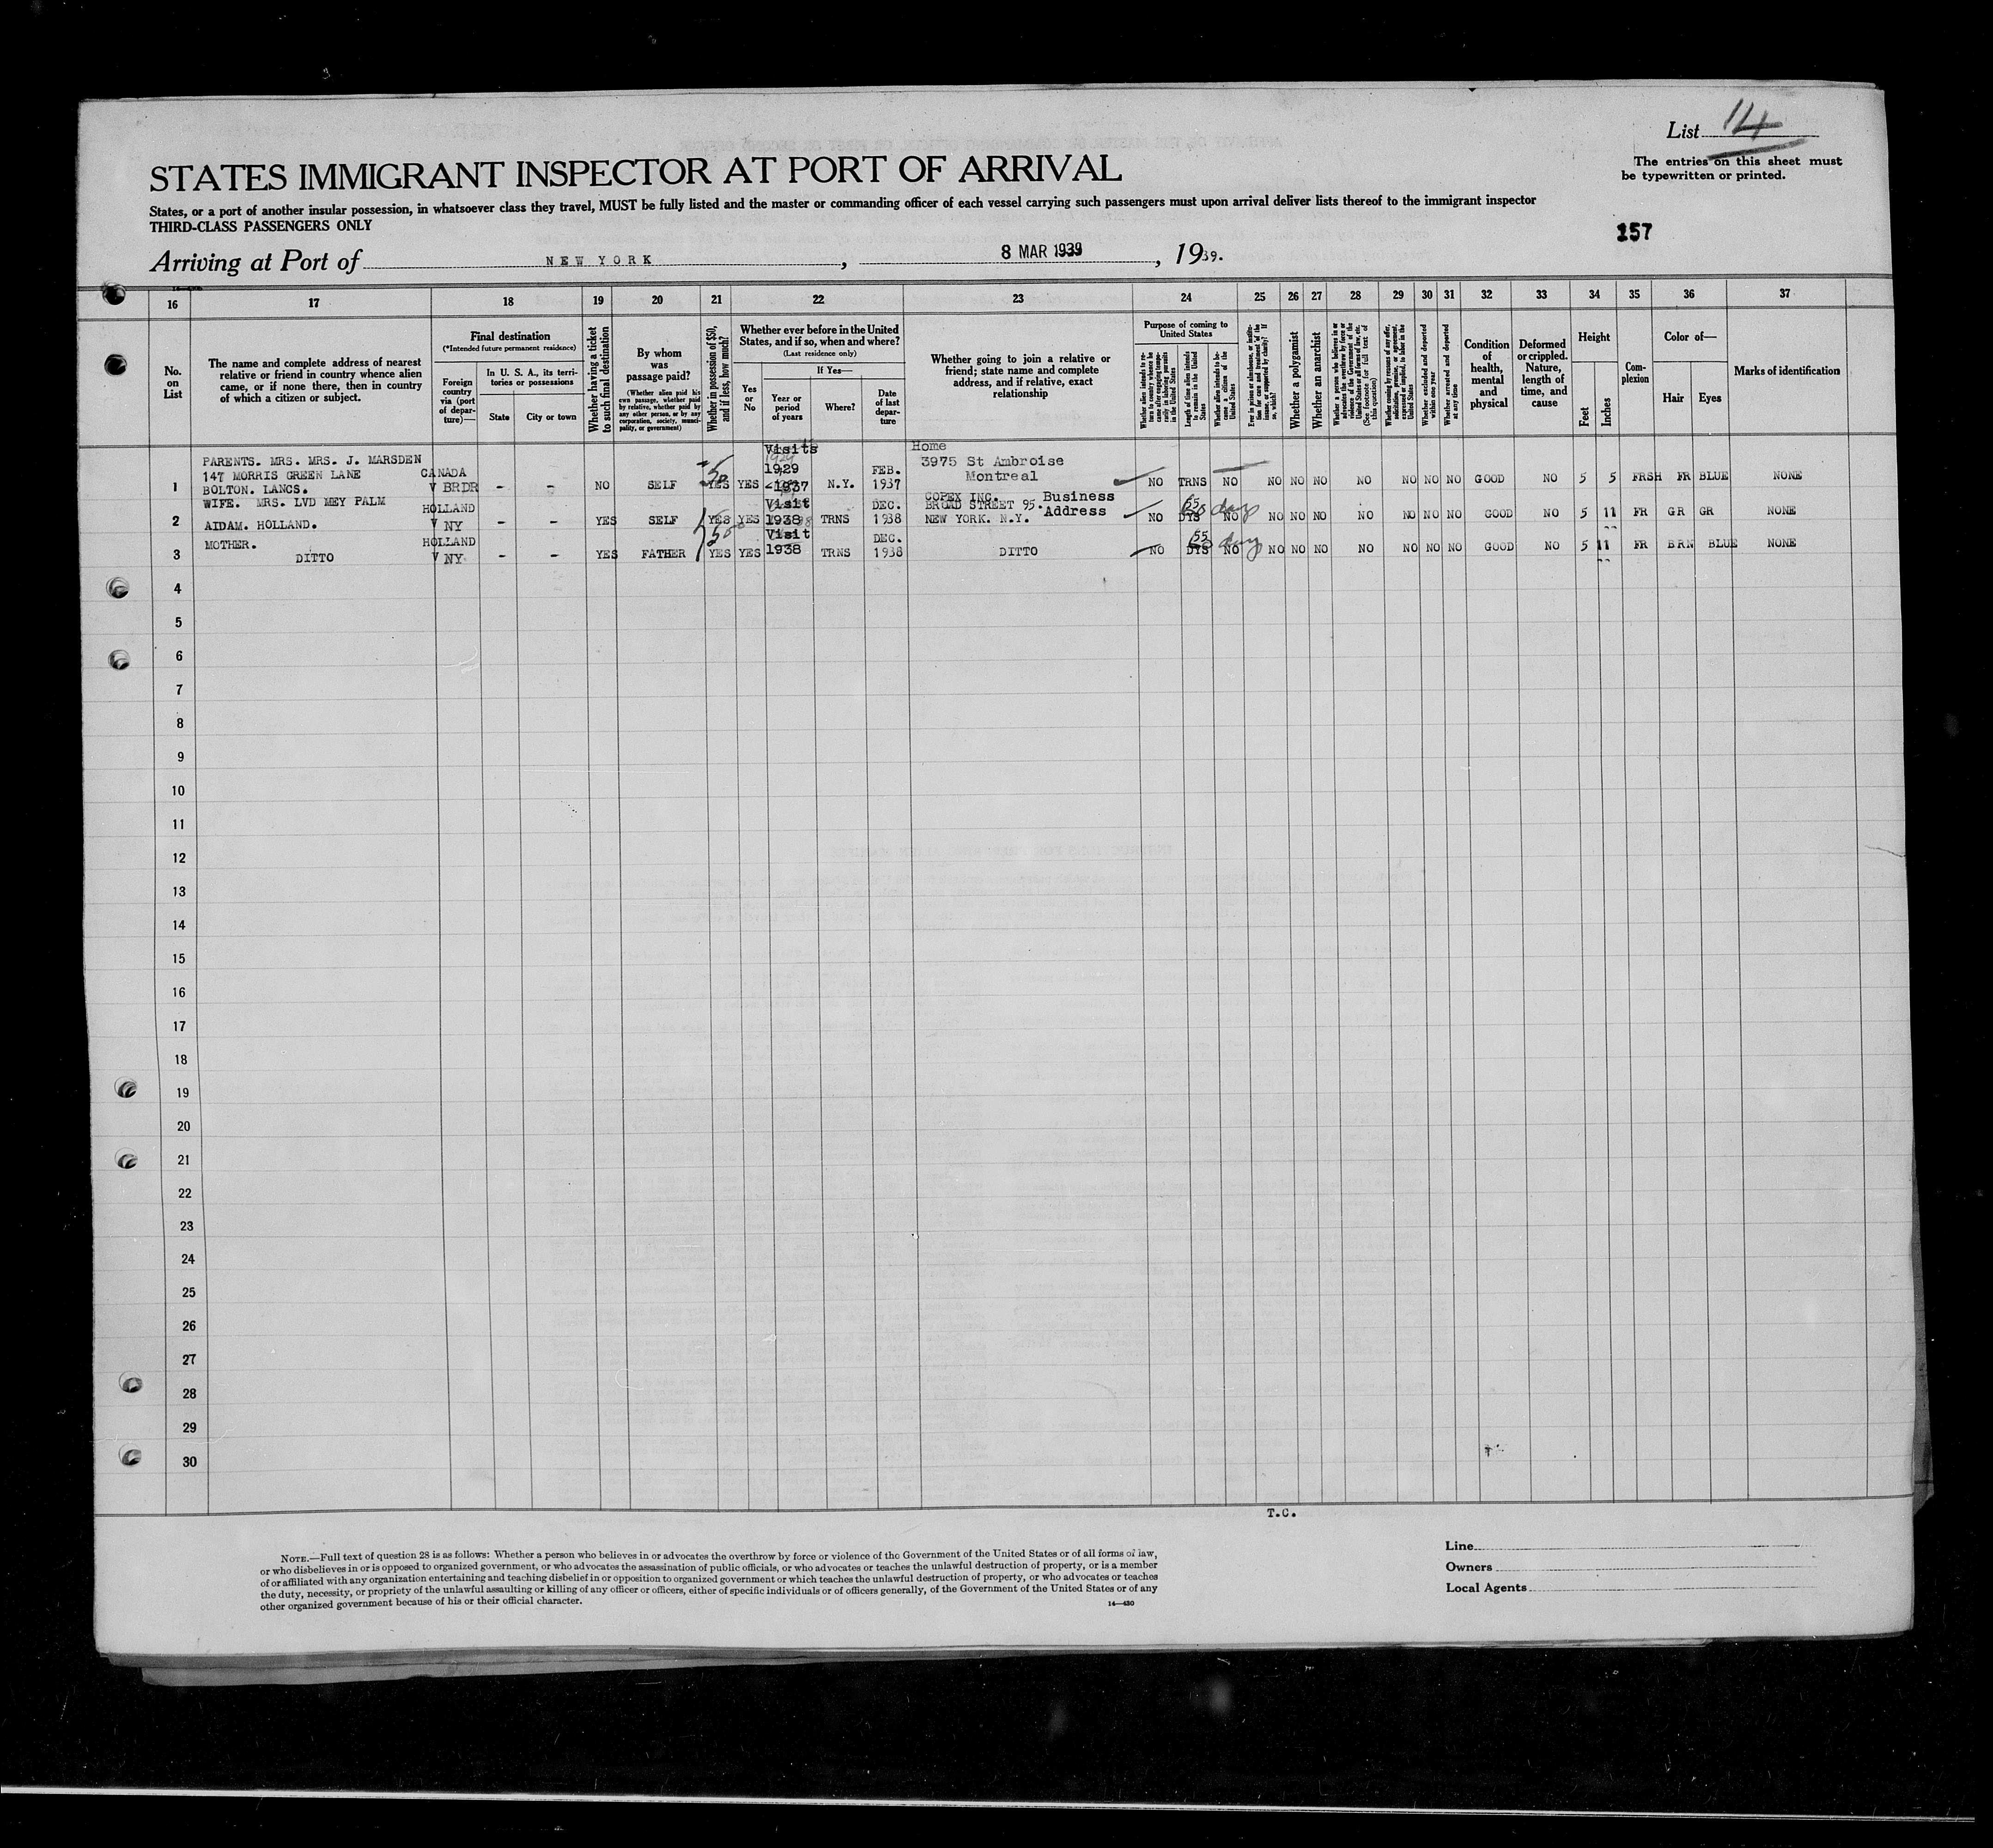 List 14
The entries on this sheet must
be typewritten or printed.
STATES IMMIGRANT INSPECTOR AT PORT OF ARRIVAL
States, or a port of another insular possession, in whatsoever class they travel, MUST be fully listed and the master or commanding officer of each vessel carrying such passengers must upon arrival deliver lists thereof to the immigrant inspector
THIRD-CLASS PASSENGERS ONLY
157
Arriving at Port of NEW YORK, 8 MAR 1939, 1939.
16 17 18 19 20 21 22 23 24 25 26 27 28 29 30 31 32 33 34 35 36 37
No. on List
The name and complete address of nearest
relative or friend in country whence alien
came, or if none there, then in country
of which a citizen or subject.
Final destination
(*Intended future permanent residence)
Foreign country via (port of departure)—
In U. S. A., its territories or possessions
State
City or town
Whether having a ticket to such final destination
By whom was passage paid?
(Whether alien paid his own passage, whether paid by relative, whether paid by any other person, or by any corporation, society, municipality, or government)
Whether in possession of $50, and if less, how much?
Whether ever before in the United States, and if so, when and where?
(Last residence only)
Yes or No
If Yes—
Year or period of years
Where?
Date of last departure
Whether going to join a relative or
friend; state name and complete
address, and if relative, exact
relationship
Purpose of coming to United States
Length of time alien intends to remain in the United States
Whether alien intends to become a citizen of the United States
Whether a polygamist
Whether an anarchist
Whether excluded and deported within one year
Whether arrested and deported at any time
Condition of health, mental and physical
Deformed or crippled. Nature, length of time, and cause
Height
Feet
Inches
Complexion
Color of—
Hair
Eyes
Marks of identification
1 PARENTS. MRS. MRS. J. MARSDEN
147 MORRIS GREEN LANE
BOLTON. LANCS.
CANADA V BRDR - - NO SELF YES YES Visits 1929 -1937 N.Y. FEB. 1937
Home
3975 St Ambroise
Montreal
NO TRNS NO NO NO NO NO NO NO NO GOOD NO 5 5 FRSH FR BLUE NONE
2 WIFE. MRS. LVD MEY PALM
AIDAM. HOLLAND.
HOLLAND V NY - - YES SELF YES YES Visit 1938 TRNS DEC. 1938
COPEX INC. Business
BROAD STREET 95. Address
NEW YORK. N.Y.
NO DYS days NO NO NO NO NO NO NO NO GOOD NO 5 11 FR GR GR NONE
3 MOTHER.
DITTO
HOLLAND V NY - - YES FATHER YES YES Visit 1938 TRNS DEC. 1938
DITTO
NO 55 DYS days NO NO NO NO NO NO NO NO GOOD NO 5 11 FR BRN BLUE NONE
4
5
6
7
8
9
10
11
12
13
14
15
16
17
18
19
20
21
22
23
24
25
26
27
28
29
30
T.C.
NOTE.—Full text of question 28 is as follows: Whether a person who believes in or advocates the overthrow by force or violence of the Government of the United States or of all forms of law,
or who disbelieves in or is opposed to organized government, or who advocates the assassination of public officials, or who advocates or teaches the unlawful destruction of property, or is a member
of or affiliated with any organization entertaining and teaching disbelief in or opposition to organized government or which teaches the unlawful destruction of property, or who advocates or teaches
the duty, necessity, or propriety of the unlawful assaulting or killing of any officer or officers, either of specific individuals or of officers generally, of the Government of the United States or of any
other organized government because of his or their official character.
14—430
Line
Owners
Local Agents